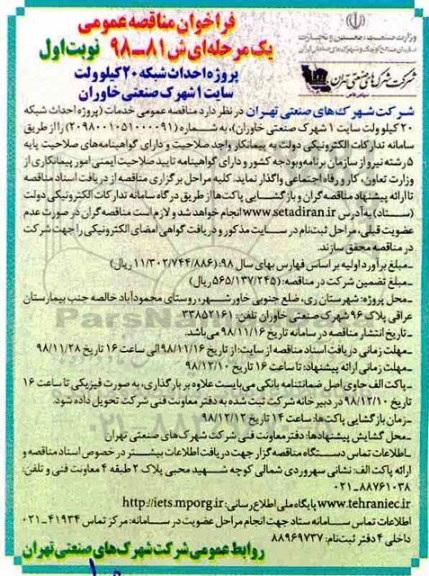 فراخوان مناقصه عمومی
یک مرحله‌ای ش ۸۱-۹۸ نوبت اول
پروژه احداث شبکه ۲۰ کیلو ولت
سایت ۱ شهرک صنعتی خاوران
وزارت صنعت، معدن و تجارت
سازمان صنایع کوچک و شهرک‌های صنعتی ایران
شرکت شهرک‌های صنعتی تهران
شرکت شهرک‌های صنعتی تهران در نظر دارد مناقصه عمومی خدمات (پروژه احداث شبکه
۲۰ کیلو ولت سایت ۱ شهرک صنعتی خاوران)، به شماره (۲۰۹۸۰۰۱۰۵۱۰۰۰۰۹۱) را از طریق
سامانه تدارکات الکترونیکی دولت به پیمانکار واجد صلاحیت و دارای گواهینامه‌های صلاحیت پایه
۵ رشته نیرو از سازمان برنامه و بودجه کشور و دارای گواهینامه تایید صلاحیت ایمنی امور پیمانکاری از
وزارت تعاون، کار و رفاه اجتماعی واگذار نماید. کلیه مراحل برگزاری مناقصه از دریافت اسناد مناقصه
تا ارائه پیشنهاد مناقصه گران و بازگشایی پاکت‌ها از طریق درگاه سامانه تدارکات الکترونیکی دولت
(ستاد) به آدرس www.setadiran.ir انجام خواهد شد و لازم است مناقصه گران در صورت عدم
عضویت قبلی، مراحل ثبت نام در سایت مذکور و دریافت گواهی امضای الکترونیکی را جهت شرکت
در مناقصه محقق سازند.
-مبلغ برآورد اولیه بر اساس فهارس بهای سال ۹۸: (۱۱/۳۰۲/۷۴۴/۸۸۶ ریال)
-مبلغ تضمین شرکت در مناقصه: (۵۶۵/۱۳۷/۲۴۵ ریال)
-محل پروژه: شهرستان ری، ضلع جنوبی خاورشهر، روستای محمودآباد خالصه جنب بیمارستان
عراقی پلاک ۹۶ شهرک صنعتی خاوران تلفن: ۳۳۸۵۲۱۶۱
-تاریخ انتشار مناقصه در سامانه تاریخ ۹۸/۱۱/۱۶ می‌باشد.
-مهلت زمانی دریافت اسناد مناقصه از سایت: از تاریخ ۹۸/۱۱/۱۶ الی ساعت ۱۶ تاریخ ۹۸/۱۱/۲۸
-مهلت زمانی ارائه پیشنهاد: تا ساعت ۱۶ تاریخ ۹۸/۱۲/۱۰
-پاکت الف حاوی اصل ضمانتنامه بانکی می‌بایست علاوه بر بارگذاری، به صورت فیزیکی تا ساعت ۱۶
تاریخ ۹۸/۱۲/۱۰ در دبیرخانه شرکت ثبت شده به دفتر معاونت فنی شرکت تحویل داده شود.
-زمان بازگشایی پاکت‌ها: ساعت ۱۴ تاریخ ۹۸/۱۲/۱۲
-محل گشایش پیشنهادها: دفتر معاونت فنی شرکت شهرک‌های صنعتی تهران
-اطلاعات تماس دستگاه مناقصه گزار جهت دریافت اطلاعات بیشتر در خصوص اسناد مناقصه و
ارائه پاکت الف: نشانی سهروردی شمالی کوچه شهید محبی پلاک ۲ طبقه ۴ معاونت فنی و تلفن:
۰۲۱-۸۸۷۶۱۰۳۸
www.tehraniec.ir پایگاه ملی اطلاع رسانی: http://iets.mporg.ir
اطلاعات تماس سامانه ستاد جهت انجام مراحل عضویت در سامانه: مرکز تماس ۴۱۹۳۴-۰۲۱
داخلی ۴ دفتر ثبت نام: ۸۸۹۶۹۷۳۷
روابط عمومی شرکت شهرک‌های صنعتی تهران